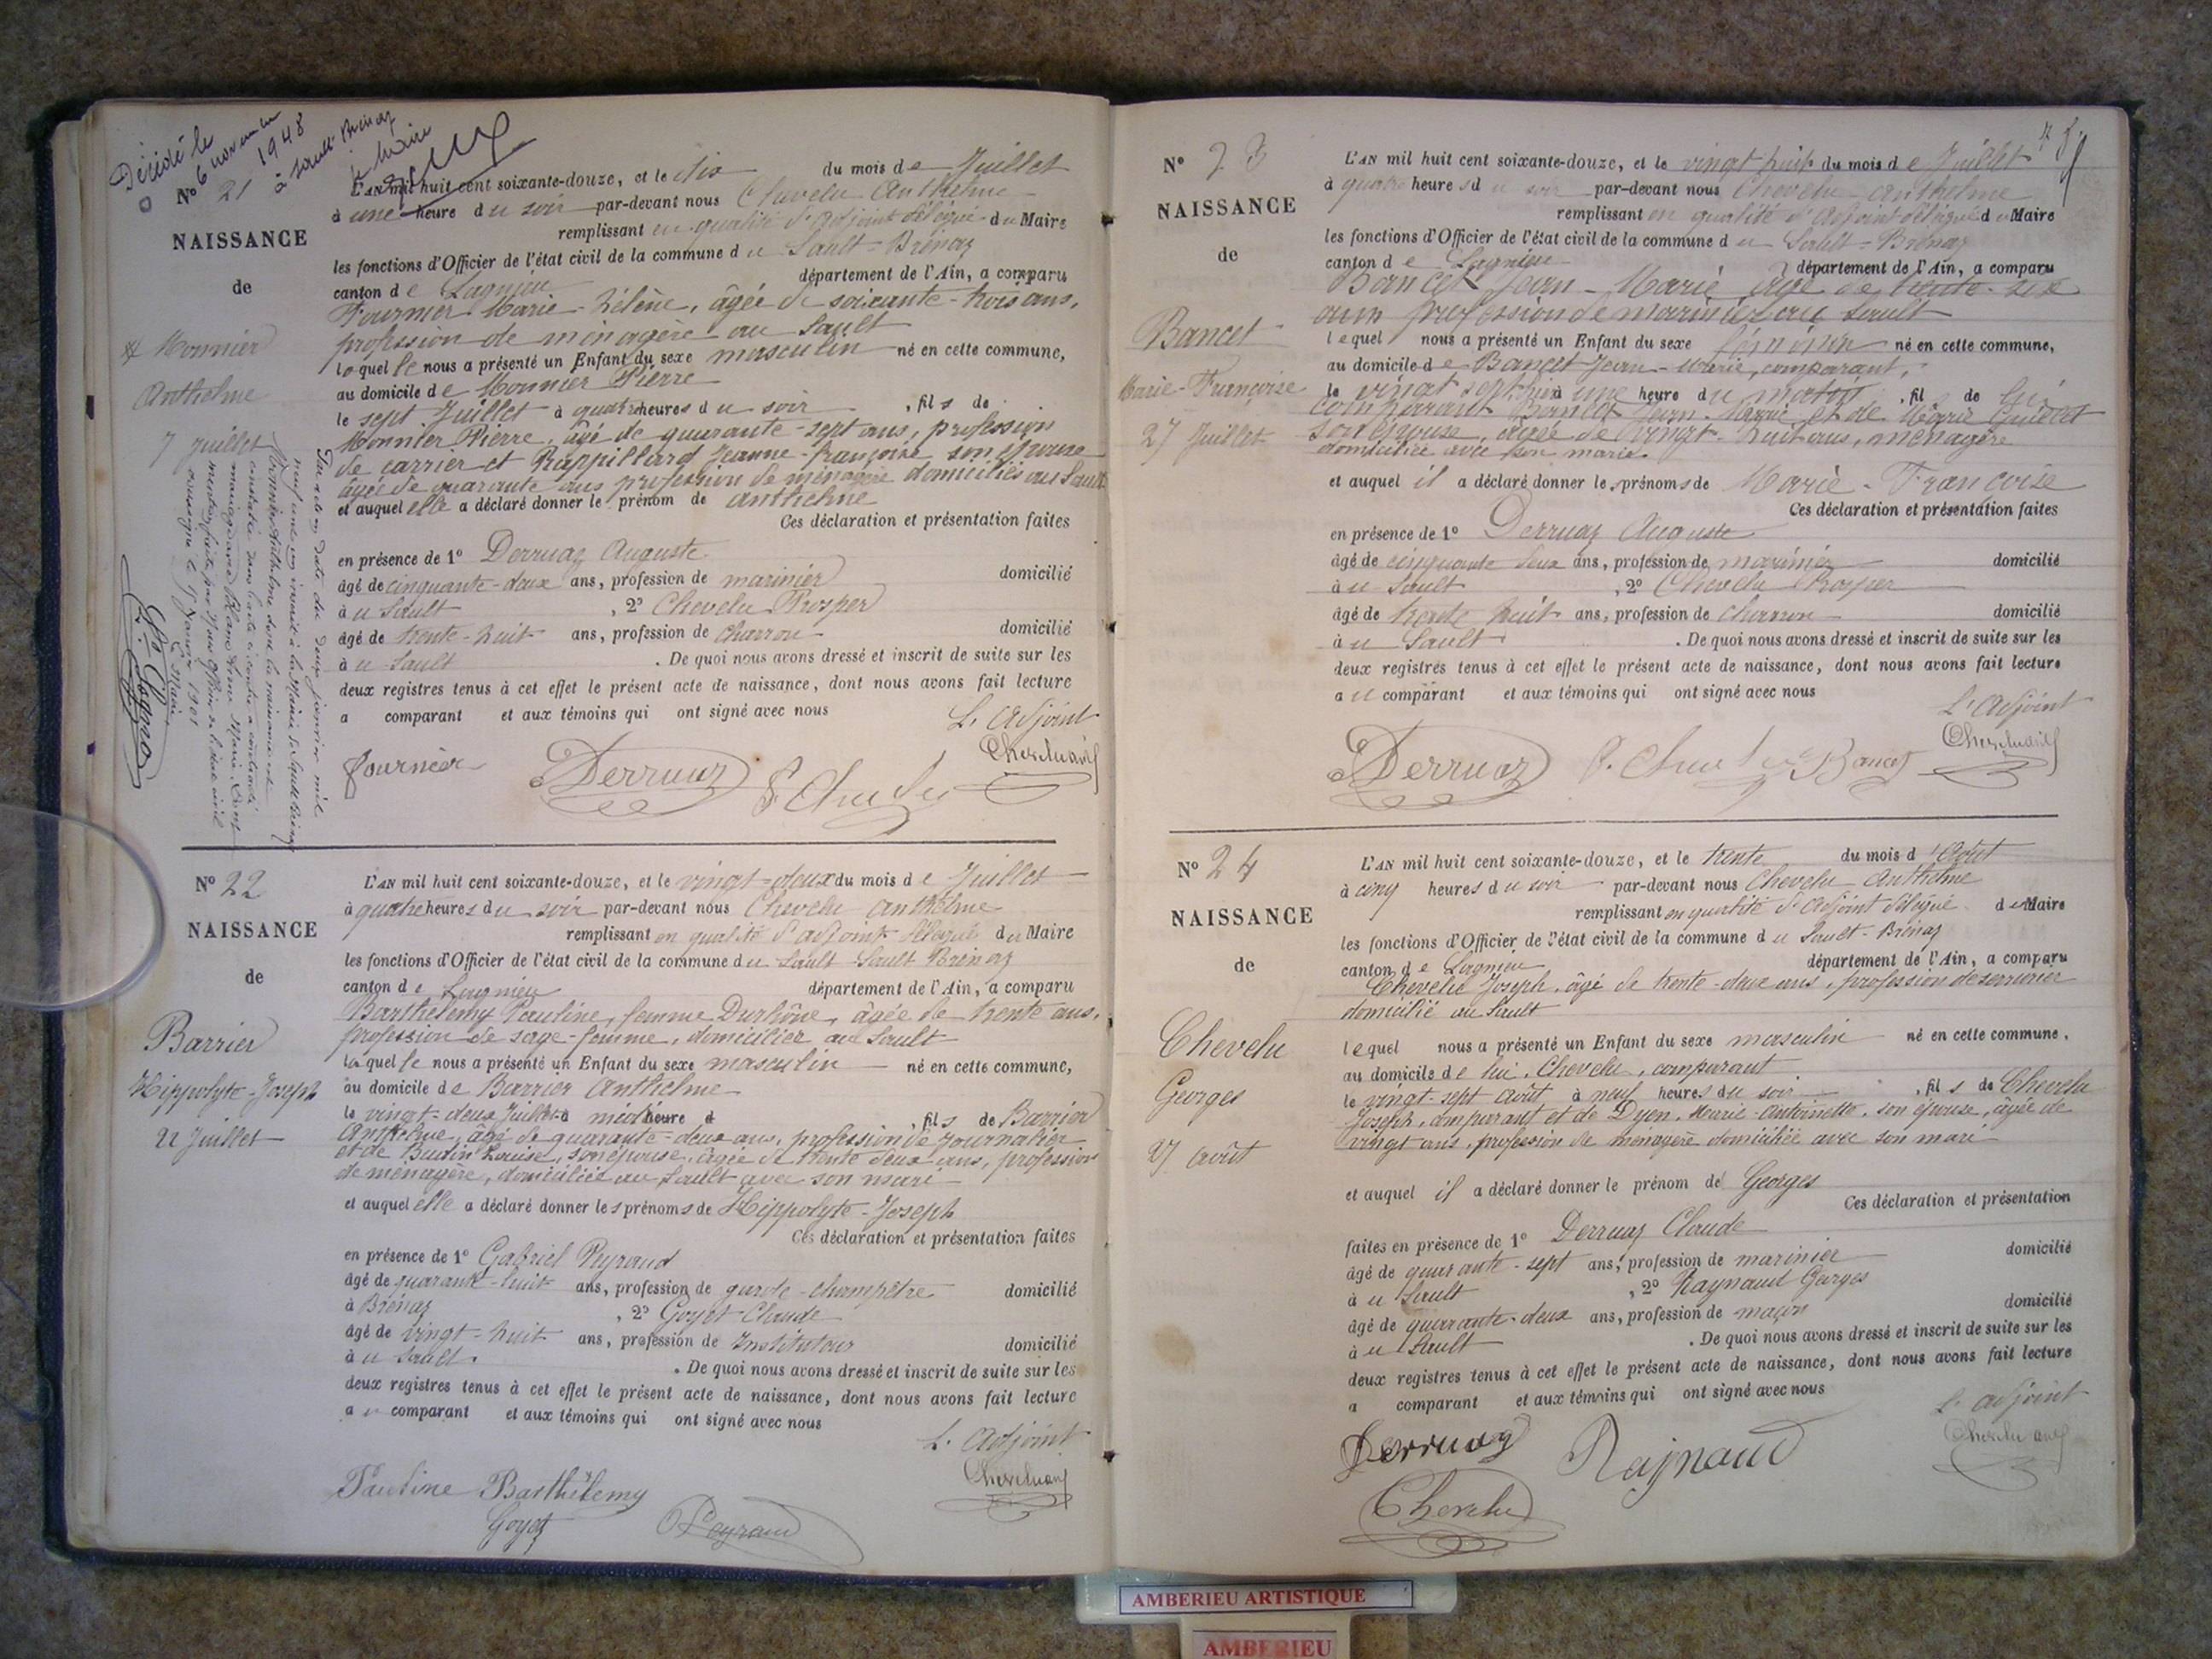 Décédé le
6 novembre 1948
à Sault-Brénaz
le Maire
N° 21
NAISSANCE
de
Monnier
Anthelme
7 Juillet
L'AN mil huit cent soixante-douze, et le dix du mois de Juillet
à une heure du soir par-devant nous Chevelu Anthelme
remplissant en qualité d'adjoint délégué du Maire
les fonctions d'Officier de l'état civil de la commune du Sault-Brénaz
canton de Lagnieu département de l'Ain, a comparu
Fournier Marie-Hélène, âgée de soixante-trois ans,
profession de ménagère au Sault
laquelle nous a présenté un Enfant du sexe masculin né en cette commune,
au domicile de Monnier Pierre
le sept Juillet à quatre heures du soir, fils de
Monnier Pierre, âgé de quarante-sept ans, profession
de carrier et Rappillard Jeanne-françoise son épouse
âgée de quarante ans profession de ménagère domiciliés au Sault
et auquel elle a déclaré donner le prénom de anthelme
Ces déclaration et présentation faites
en présence de 1° Derruaz Auguste
âgé de cinquante-deux ans, profession de marinier domicilié
au Sault, 2° Chevelu Prosper
âgé de trente-huit ans, profession de charron domicilié
au Sault. De quoi nous avons dressé et inscrit de suite sur les
deux registres tenus à cet effet le présent acte de naissance, dont nous avons fait lecture
a comparant et aux témoins qui ont signé avec nous
L'Adjoint
Fournier Derruaz P. Chevelu Chevelu
N° 22
NAISSANCE
de
Barrier
Hippolyte-Joseph
22 Juillet
L'AN mil huit cent soixante-douze, et le vingt-deux du mois de Juillet
à quatre heures du soir par-devant nous Chevelu Anthelme
remplissant en qualité d'adjoint délégué du Maire
les fonctions d'Officier de l'état civil de la commune du Sault Sault Brénaz
canton de Lagnieu département de l'Ain, a comparu
Barthélemy Pauline, femme Durhône, âgée de trente ans,
profession de sage-femme, domiciliée au Sault
laquelle nous a présenté un Enfant du sexe masculin né en cette commune,
au domicile de Barrier Anthelme
le vingt-deux Juillet à midi heure d, fils de Barrier
Anthelme, âgé de quarante-deux ans, profession de journalier
et de Budin Louise, son épouse, âgée de trente deux ans, profession
de ménagère, domiciliée au Sault avec son mari
et auquel elle a déclaré donner les prénoms de Hippolyte-Joseph
Ces déclaration et présentation faites
en présence de 1° Gabriel Peyraud
âgé de quarante-huit ans, profession de garde-champêtre domicilié
à Brénaz, 2° Goyet Claude
âgé de vingt-huit ans, profession de Instituteur domicilié
au Sault. De quoi nous avons dressé et inscrit de suite sur les
deux registres tenus à cet effet le présent acte de naissance, dont nous avons fait lecture
au comparant et aux témoins qui ont signé avec nous
L'Adjoint
Pauline Barthélemy Chevelu
Goyet Peyraud
N° 23
NAISSANCE
de
Bancet
Marie-Françoise
27 Juillet
L'AN mil huit cent soixante-douze, et le vingt huit du mois de Juillet
à quatre heures du soir par-devant nous Chevelu Anthelme
remplissant en qualité d'Adjoint délégué du Maire
les fonctions d'Officier de l'état civil de la commune du Sault-Brénaz
canton de Lagnieu département de l'Ain, a comparu
Bancet Jean-Marie âgé de trente-six
ans profession de marinier au Sault
lequel nous a présenté un Enfant du sexe féminin né en cette commune,
au domicile de Bancet Jean-Marie, comparant,
le vingt sept à une heure du matin, fil de
comparant Bancet Jean-Marie et de Marie Guiettet
son épouse, âgée de vingt-huit ans, ménagère
domiciliée avec son mari.
et auquel il a déclaré donner les prénoms de Marie-Françoise
Ces déclaration et présentation faites
en présence de 1° Derruaz Auguste
âgé de cinquante deux ans, profession de marinier domicilié
au Sault, 2° Chevelu Prosper
âgé de trente huit ans, profession de charron domicilié
au Sault. De quoi nous avons dressé et inscrit de suite sur les
deux registres tenus à cet effet le présent acte de naissance, dont nous avons fait lecture
au comparant et aux témoins qui ont signé avec nous
L'Adjoint
Derruaz P. Chevelu Bancet Chevelu
N° 24
NAISSANCE
de
Chevelu
Georges
27 Août
L'AN mil huit cent soixante-douze, et le trente du mois d'Août
à cinq heures du soir par-devant nous Chevelu Anthelme
remplissant en qualité d'Adjoint délégué du Maire
les fonctions d'Officier de l'état civil de la commune du Sault-Brénaz
canton de Lagnieu département de l'Ain, a comparu
Chevelu Joseph, âgé de trente-deux ans, profession de serrurier
domicilié au Sault
lequel nous a présenté un Enfant du sexe masculin né en cette commune,
au domicile de lui, Chevelu, comparant
le vingt-sept août à neuf heures du soir, fils de Chevelu
Joseph, comparant et de Dyon, Marie-Antoinette, son épouse, âgée de
vingt ans, profession de ménagère domiciliée avec son mari
et auquel il a déclaré donner le prénom de Georges
Ces déclaration et présentation
faites en présence de 1° Derruaz Claude
âgé de quarante-sept ans, profession de marinier domicilié
au Sault, 2° Raynaud Georges
âgé de quarante-deux ans, profession de maçon domicilié
au Sault. De quoi nous avons dressé et inscrit de suite sur les
deux registres tenus à cet effet le présent acte de naissance, dont nous avons fait lecture
a comparant et aux témoins qui ont signé avec nous
L'adjoint
Derruaz Raynaud Chevelu
Chevelu
AMBERIEU ARTISTIQUE
AMBERIEU